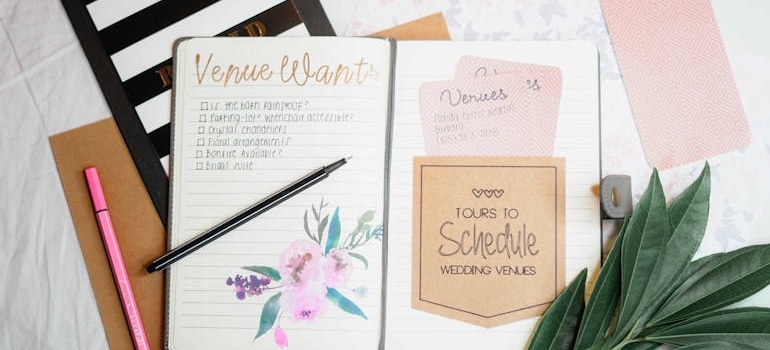 Venue Wants
Is the barn rainproof?
Parking-lots wheelchair accessible?
Crystal chandeliers
Floral arrangements
Bonfire Available?
Bridal suite
Venues
TOURS TO
Schedule
WEDDING VENUES